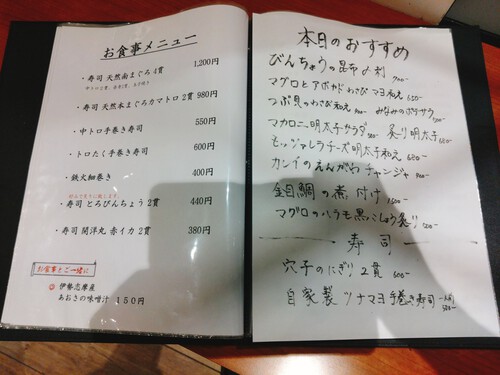 お食事メニュー
・寿司 天然南まぐろ 4貫 1,200円
・寿司 天然本まぐろカマトロ 2貫 980円
・中トロ手巻き寿司 550円
・トロたく手巻き寿司 600円
・鉄火細巻き 400円
・寿司 とろびんちょう 2貫 440円
・寿司 関洋丸 赤イカ 2貫 380円
お食事とご一緒に
伊勢志摩産
あおさの味噌汁 150円
本日のおすすめ
びんちょうの昆布〆刺
マグロとアボカドわさびマヨ和え 650-
つぶ貝のわさび和え みなみのポテサラ
マカロニ明太子サラダ 炙り明太子
モッツァレラチーズ明太子和え 600-
カレイのえんがわチャンジャ
金目鯛の煮付け
マグロのハラモ黒こしょう炙り
寿司
穴子のにぎり 2貫 600-
自家製ツナマヨ手巻き寿司